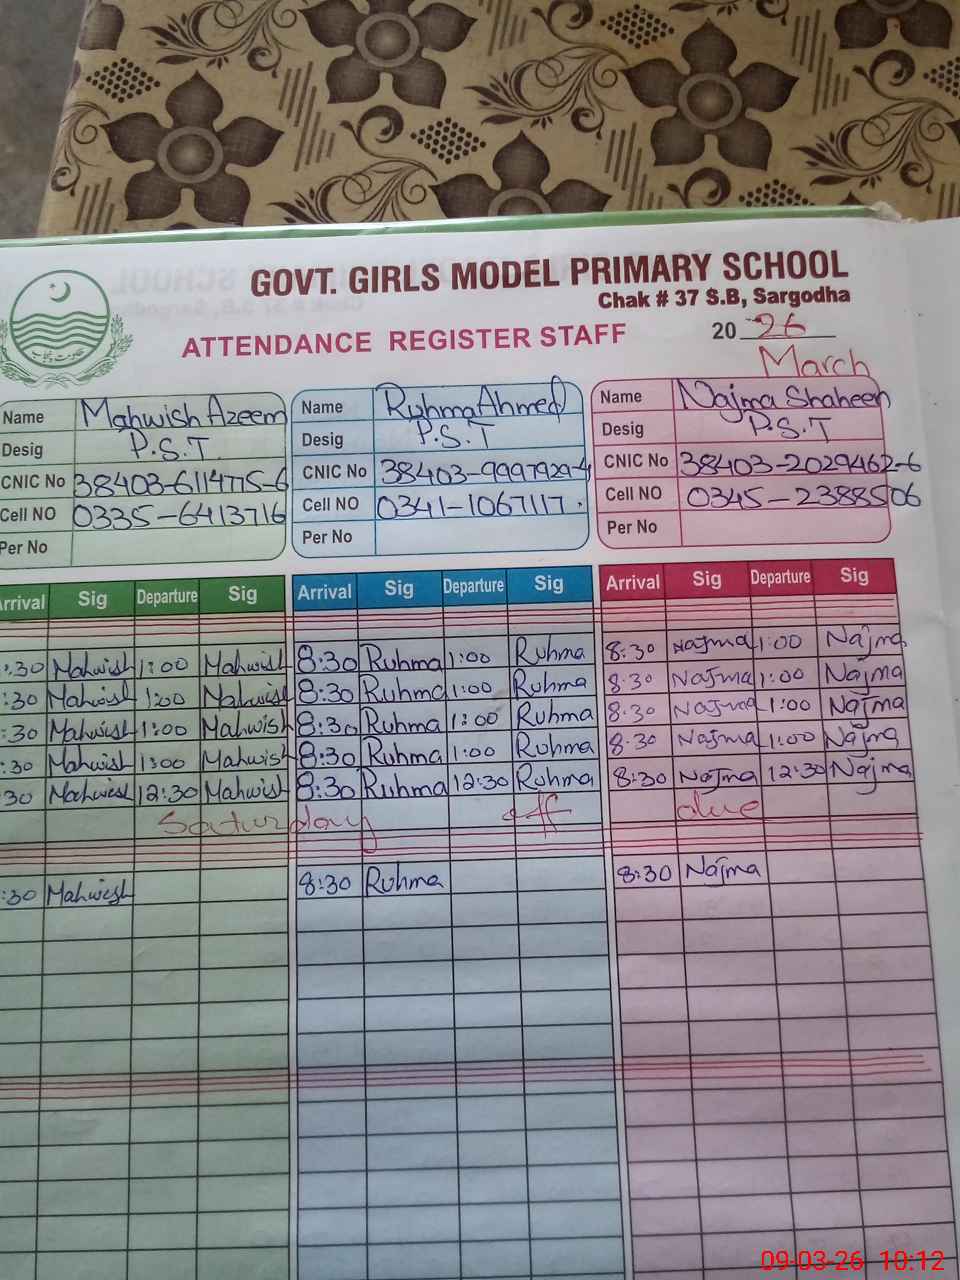 GOVT. GIRLS MODEL PRIMARY SCHOOL
Chak # 37 S.B, Sargodha
ATTENDANCE REGISTER STAFF 2026
March
حکومت پنجاب
Name Mahwish Azeem Name Ruhma Ahmed Name Najma Shaheen
Desig P.S.T. Desig P.S.T Desig P.S.T
CNIC No 38403-6114775-6 CNIC No 38403-9997929-4 CNIC No 38403-2029462-6
Cell NO 0335-6413716 Cell NO 0341-1067117. Cell NO 0345-2388506
Per No Per No Per No
Arrival Sig Departure Sig Arrival Sig Departure Sig Arrival Sig Departure Sig
:30 Mahwish 1:00 Mahwish 8:30 Ruhma 1:00 Ruhma 8:30 Najma 1:00 Najma
:30 Mahwish 1:00 Mahwish 8:30 Ruhma 1:00 Ruhma 8:30 Najma 1:00 Najma
:30 Mahwish 1:00 Mahwish 8:30 Ruhma 1:00 Ruhma 8:30 Najma 1:00 Najma
:30 Mahwish 1:00 Mahwish 8:30 Ruhma 1:00 Ruhma 8:30 Najma 1:00 Najma
:30 Mahwish 12:30 Mahwish 8:30 Ruhma 12:30 Ruhma 8:30 Najma 12:30 Najma
Saturday off due
:30 Mahwish 8:30 Ruhma 8:30 Najma
09-03-26 10:12